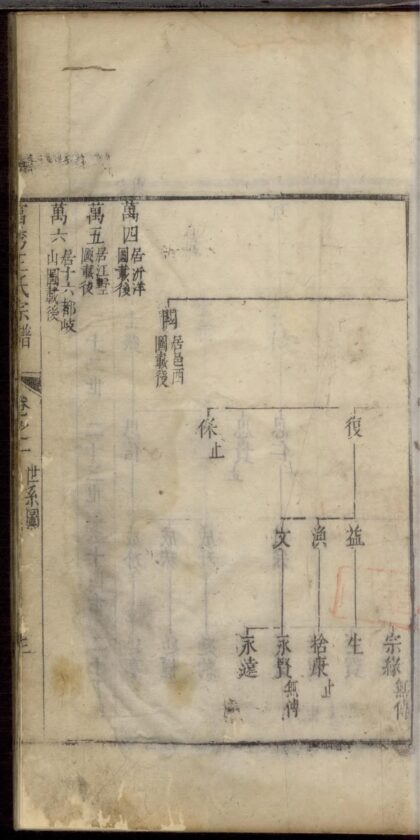 宗緣 無傳
復
益
生
漁
捨康 止
文
永賢 無傳
永遠
保 止
閣 居邑西圖載後
萬四 居汁洋圖載後
萬五 居江墅圖載後
萬六 居十六都岐山圖載後
王氏宗譜
卷之二
世系圖